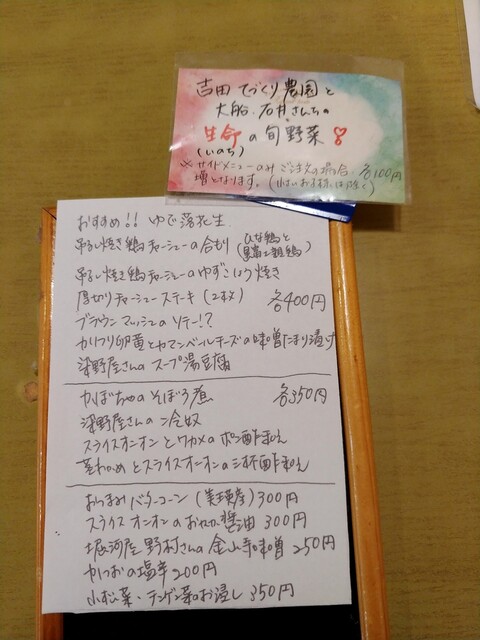 吉田 てづくり農園と
大船、石井さんちの
生命の旬野菜
(いのち)
※サイドメニューのみご注文の場合、各100円
増となります。
おすすめ!! ゆで落花生
吊るし焼き鶏チャーシューの合もり (ひな鶏と
親鶏)
吊るし焼き鶏チャーシューのゆずこしょう焼き
厚切りチャーシューステーキ (2枚) 各400円
ブラウンマッシュのソテー!?
かりつり卵黄とカマンベールチーズの味噌たまり漬け
深野屋さんのスープ湯豆腐
かぼちゃのそぼろ煮 各350円
深野屋さんの冷奴
スライスオニオンとワカメのポン酢和え
茎わかめとスライスオニオンの三杯酢和え
おつまみバターコーン (美瑛産) 300円
スライスオニオンのおかか醤油 300円
堀河屋野村さんの金山寺味噌 250円
かつおの塩辛 200円
小松菜・テンゲン菜のお浸し 350円